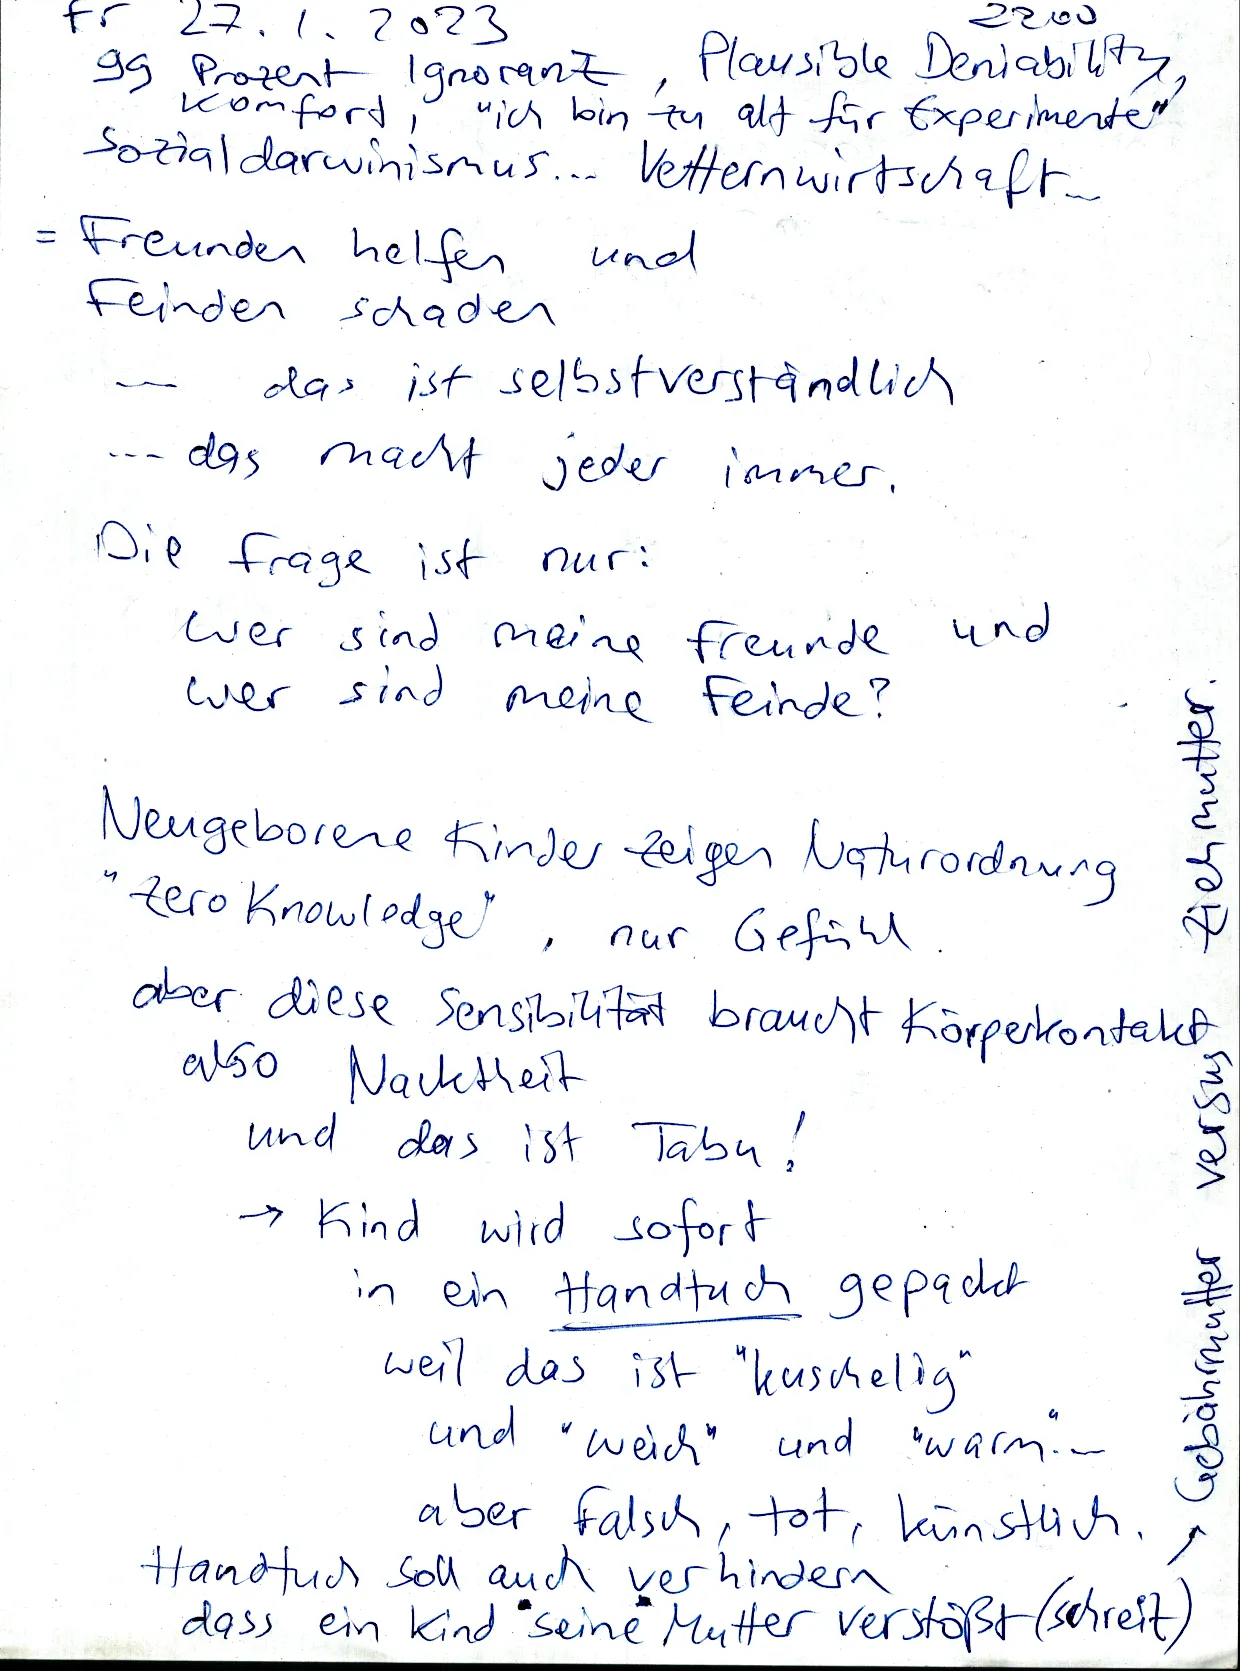 Fr 27.1.2023 2200
99 Prozent Ignoranz, Plausible Deniability,
Komfort, "ich bin zu alt für Experimente"
Sozialdarwinismus... Vetternwirtschaft...
= Freunden helfen und
Feinden schaden
... das ist selbstverständlich
... das macht jeder immer.
Die Frage ist nur:
Wer sind meine Freunde und
wer sind meine Feinde?
Neugeborene Kinder zeigen Naturordnung
"Zero Knowledge", nur Gefühl.
aber diese Sensibilität braucht Körperkontakt
also Nacktheit
und das ist Tabu!
→ Kind wird sofort
in ein Handtuch gepackt
weil das ist "kuschelig"
und "weich" und "warm"...
aber falsch, tot, künstlich.
Handtuch soll auch verhindern
dass ein Kind "seine" Mutter verstößt (schreit)
→ Gebährmutter versus Ziehmutter.